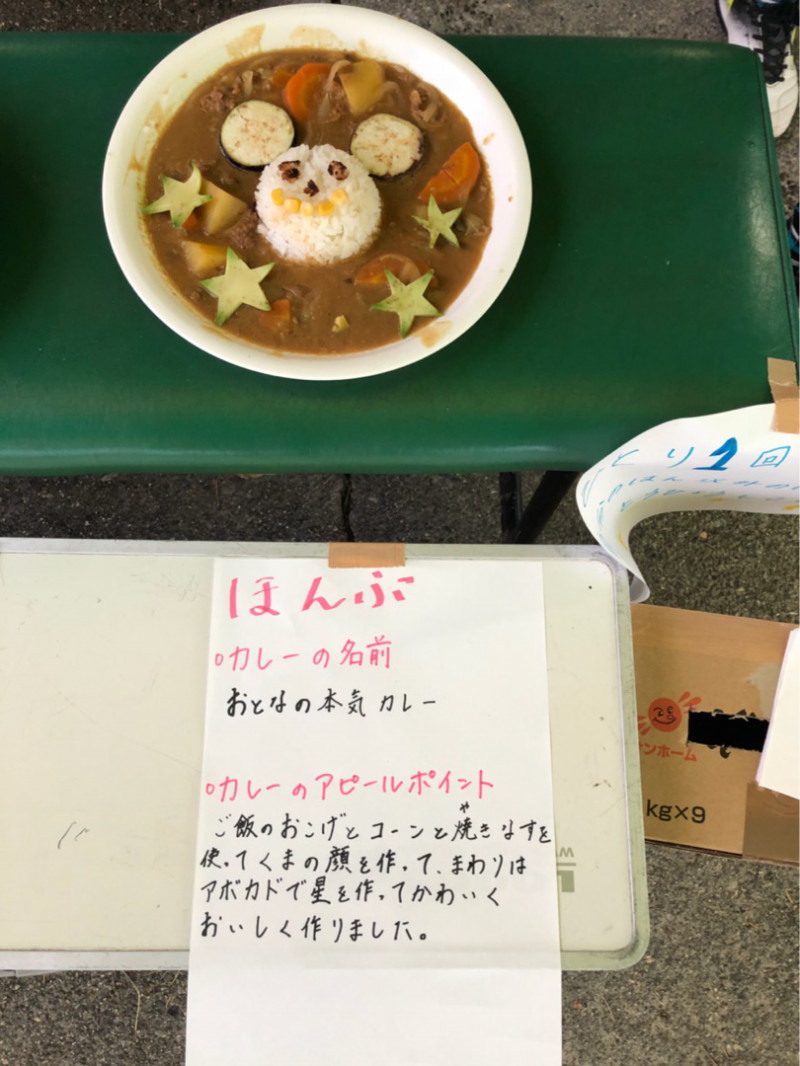 とり1回
ほんぶ
○カレーの名前
おとなの本気カレー
○カレーのアピールポイント
ご飯のおこげとコーンと焼きなすを
や
使ってくまの顔を作って、まわりは
アボカドで星を作ってかわいく
おいしく作りました。
ンホーム
kg×9